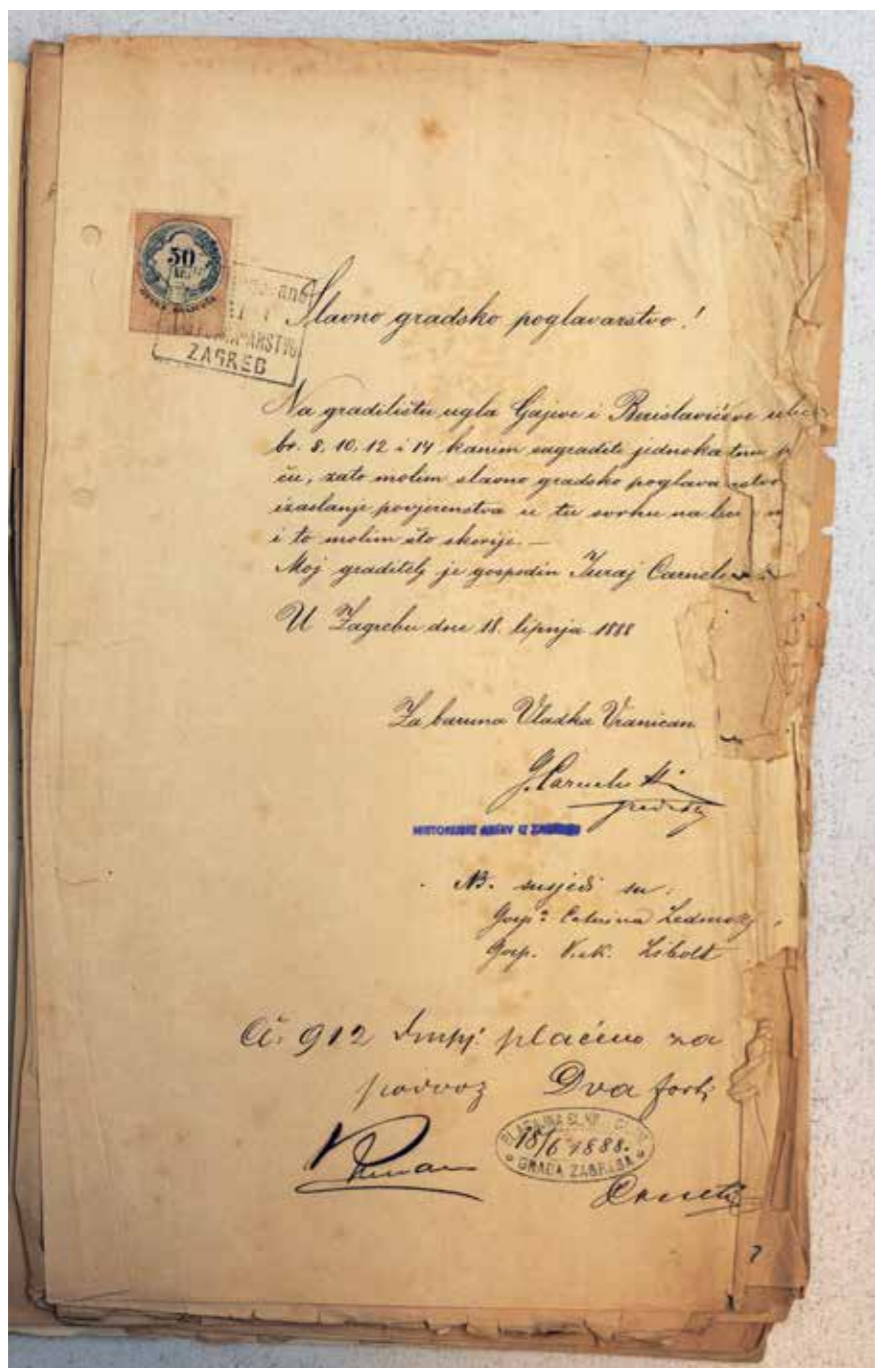 50
ZAGREB
Slavno gradsko poglavarstvo!
Na gradilištu ugla Gajeve i Bouislavićeve ulice
br. 8, 10, 12 i 14 kanim sagraditi jednokatnu
ću, zato molim slavno gradsko poglavarstvo
izaslanje povjerenstva u tu svrhu na
i to molim što skorije. —
Moj graditelj je gospodin Juraj Carnelu
U Zagrebu dne 18. lipnja 1888
Za baruna Vladka Vranican
G. Carnelutti
HISTORIJSKI ARHIV U ZAGREBU
NB. susjedi su:
Gosp. Vik. Libolt
Či. 912 plaćeno za
podvoz Dva forti
18/6 1888.
GRADA ZAGREBA
7